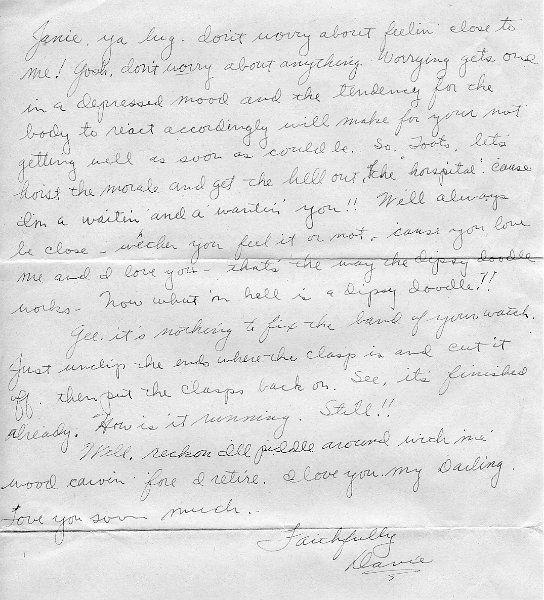 Janie, ya lug. don't worry about feelin' close to
me! Gosh, don't worry about anything. Worrying gets one
in a depressed mood and the tendency for the
body to react accordingly will make for your not
getting well as soon as could be. So, Toots, let's
hoist the morale and get the hell out the "hospital". Cause
I'm a waitin' and a wantin' you!! We'll always
be close - wether you feel it or not, 'cause you love
me and I love you - that's the way the dipsy doodle
works - Now what 'n hell is a dipsy doodle?!
Gee, it's nothing to fix the band of your watch.
Just unclip the ends where the clasp is and cut it
off. then put the clasps back on. See, it's finished
already. How is it running. Still!!
Well, reckon I'll piddle around with me
wood carvin' 'fore I retire. I love you my Darling.
Love you sooo much..
Faithfully
Davie